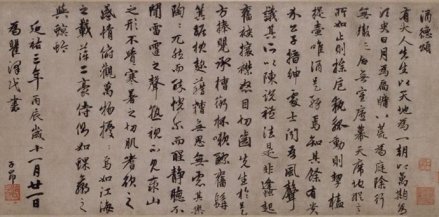 酒德頌
有大人先生以天地為一朝萬期為
須臾日月為扃牖八荒為庭除行
無轍跡居無室廬幕天席地縱意
所如止則操卮執觚動則挈榼
提壺唯酒是務焉知其餘有貴
介公子搢紳處士聞吾風聲
議其所以陳說禮法是非鋒起
奮袂攘襟怒目切齒先生於是
方捧甖承槽銜杯漱醪奮髯
箕踞枕麴藉糟無思無慮其樂
陶陶兀然而醉恍爾而醒靜聽不
聞雷霆之聲熟視不見泰山
之形不覺寒暑之切肌嗜欲之
感情俯觀萬物擾擾焉如江海
之載萍二豪侍側如蜾蠃之
與螟蛉
延祐三年丙辰歲十一月廿一日
為瞿澤民書
子昂